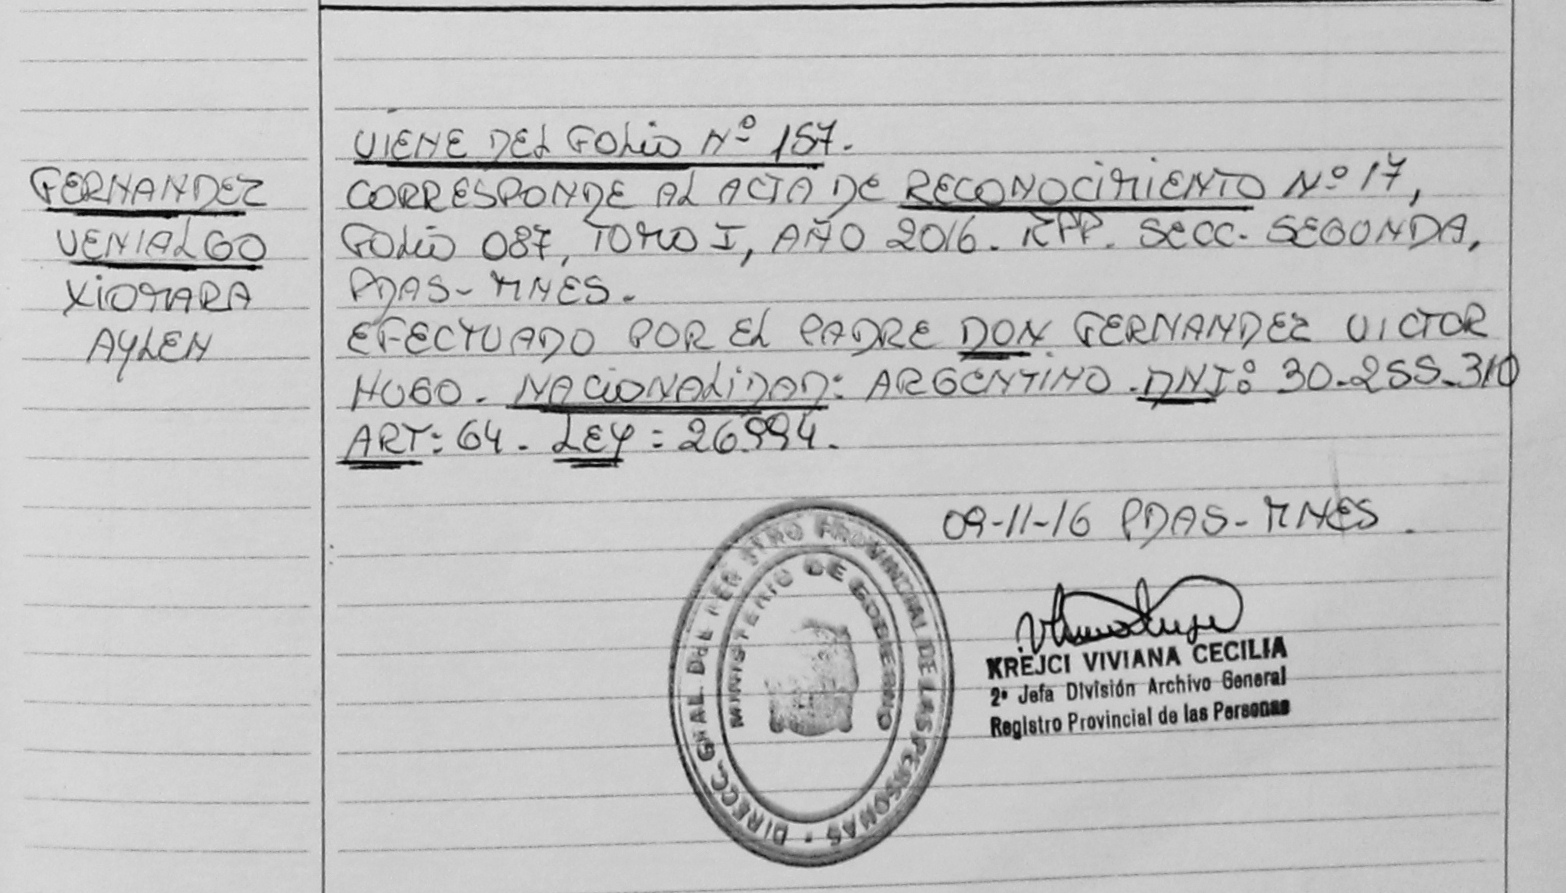 VIENE DEL FOLIO Nº 157.
FERNANDEZ
VENIALGO
XIOMARA
AYLEN
CORRESPONDE AL ACTA DE RECONOCIMIENTO Nº 17,
FOLIO 087, TOMO I, AÑO 2016. RPP. SECC. SEGUNDA,
PDAS-MNES.
EFECTUADO POR EL PADRE DON FERNANDEZ VICTOR
HUGO. NACIONALIDAD: ARGENTINO. DNI: 30.255.310
ART: 64. LEY: 26.994.
09-11-16 PDAS-MNES.
DIRECC. GRAL. DEL REGISTRO PROVINCIAL DE LAS PERSONAS
MINISTERIO DE GOBIERNO
KREJCI VIVIANA CECILIA
2ª Jefa División Archivo General
Registro Provincial de las Personas